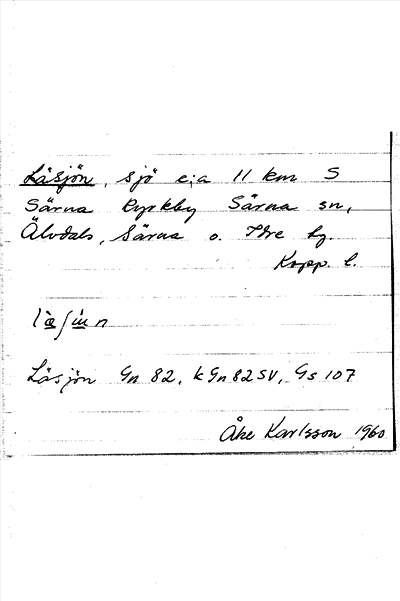 Läsjön, sjö c:a 11 km S
Särna kyrkby Särna sn,
Älvdals, Särna o. Idre tg.
Kopp. l.
Läsjön Gn 82, kGn82SV, Gs 107
Åke Karlsson 1960